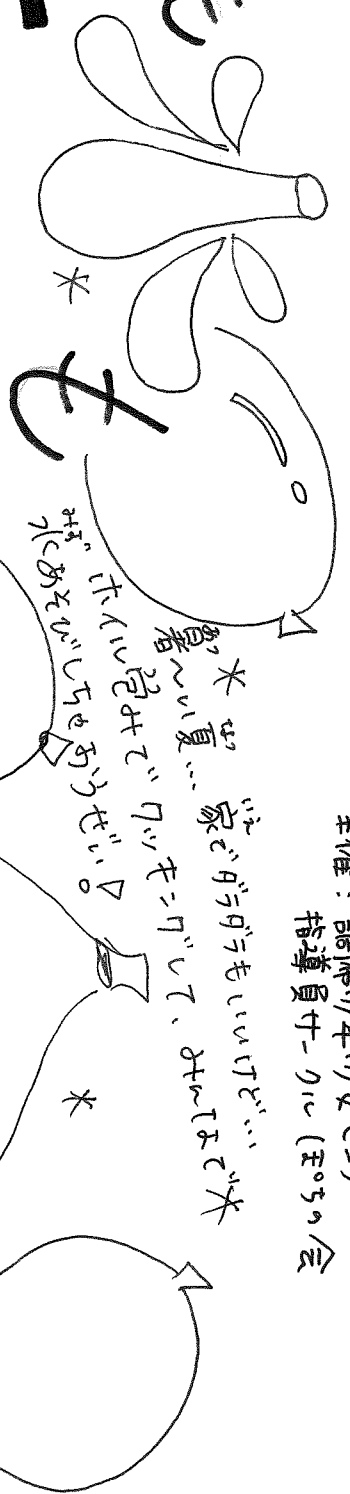 主催：
指導員サークル (ぽちの会
＊暑〜い夏… 家でダラダラもいいけど…
ホイル包みでクッキングして、みんなで＊
水あそびしちゃおうぜい！
も